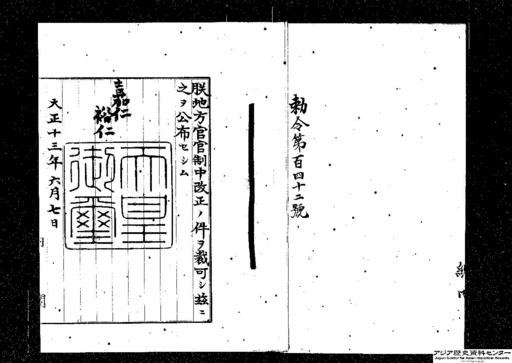 勅令第百四十二號
朕地方官官制中改正ノ件ヲ裁可シ玆ニ
之ヲ公布セシム
嘉仁
裕仁
天皇
御璽
大正十三年六月七日
内閣
アジア歴史資料センター
Japan Center for Asian Historical Records